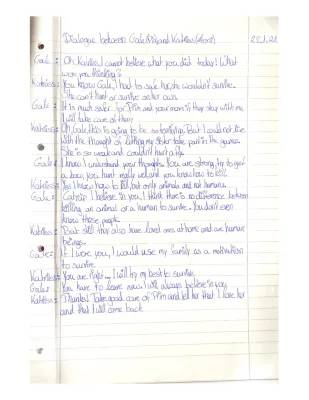 Dialogue between Gale and Katniss 22.1.21
Gale: Oh Katniss I cannot believe what you did today! What
were you thinking?
Katniss: You know Gale, I had to safe her, she wouldn't survive.
She can't hunt or survive on her own.
Gale: It is much safer for Prim and your mom if they stay with me,
I will take care of them
Katniss: Oh Gale, this is going to be so terrible. But I could not live
with the thought of letting my sister take part in the games.
She is so weak and couldn't hurt a fly.
Gale: I know I understand your thoughts. You are strong, try to get
a bow, you hunt really well and you know how to kill.
Katniss: Yes I know how to kill, but only animals and not humans.
Gale: Catnip I believe in you, I think there is no difference between
killing an animal or a human to survive. You don't even
know these people.
Katniss: But still they also have loved ones at home and are human
beings.
Gale: If I were you, I would use my family as a motivation
to survive.
Katniss: You are right, I will try my best to survive.
Gale: You have to leave now. I will always believe in you
Katniss: Thanks! Take good care of Prim and tell her that I love her
and that I will come back